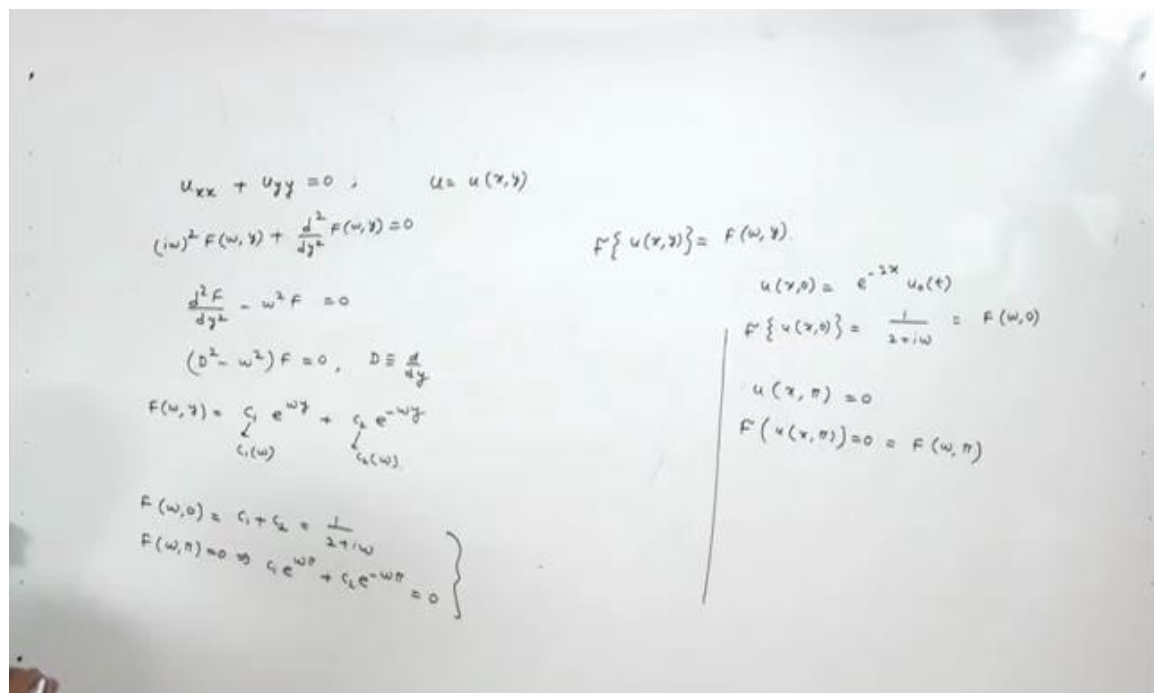 u_xx + u_yy = 0 , u = u(x,y)
(iω)² F(ω,y) + d²/dy² F(ω,y) = 0
d²F/dy² - ω²F = 0
(D² - ω²) F = 0, D ≡ d/dy
F(ω,y) = c₁ e^ωy + c₂ e^-ωy
c₁(ω) c₂(ω)
F(ω,0) = c₁ + c₂ = 1/(2+iω)
F(ω,π) = 0 ⇒ c₁e^ωπ + c₂e^-ωπ = 0
F{u(x,y)} = F(ω,y).
u(x,0) = e^-2x u₀(t)
F{u(x,0)} = 1/(2+iω) = F(ω,0)
u(x,π) = 0
F(u(x,π)) = 0 = F(ω,π)